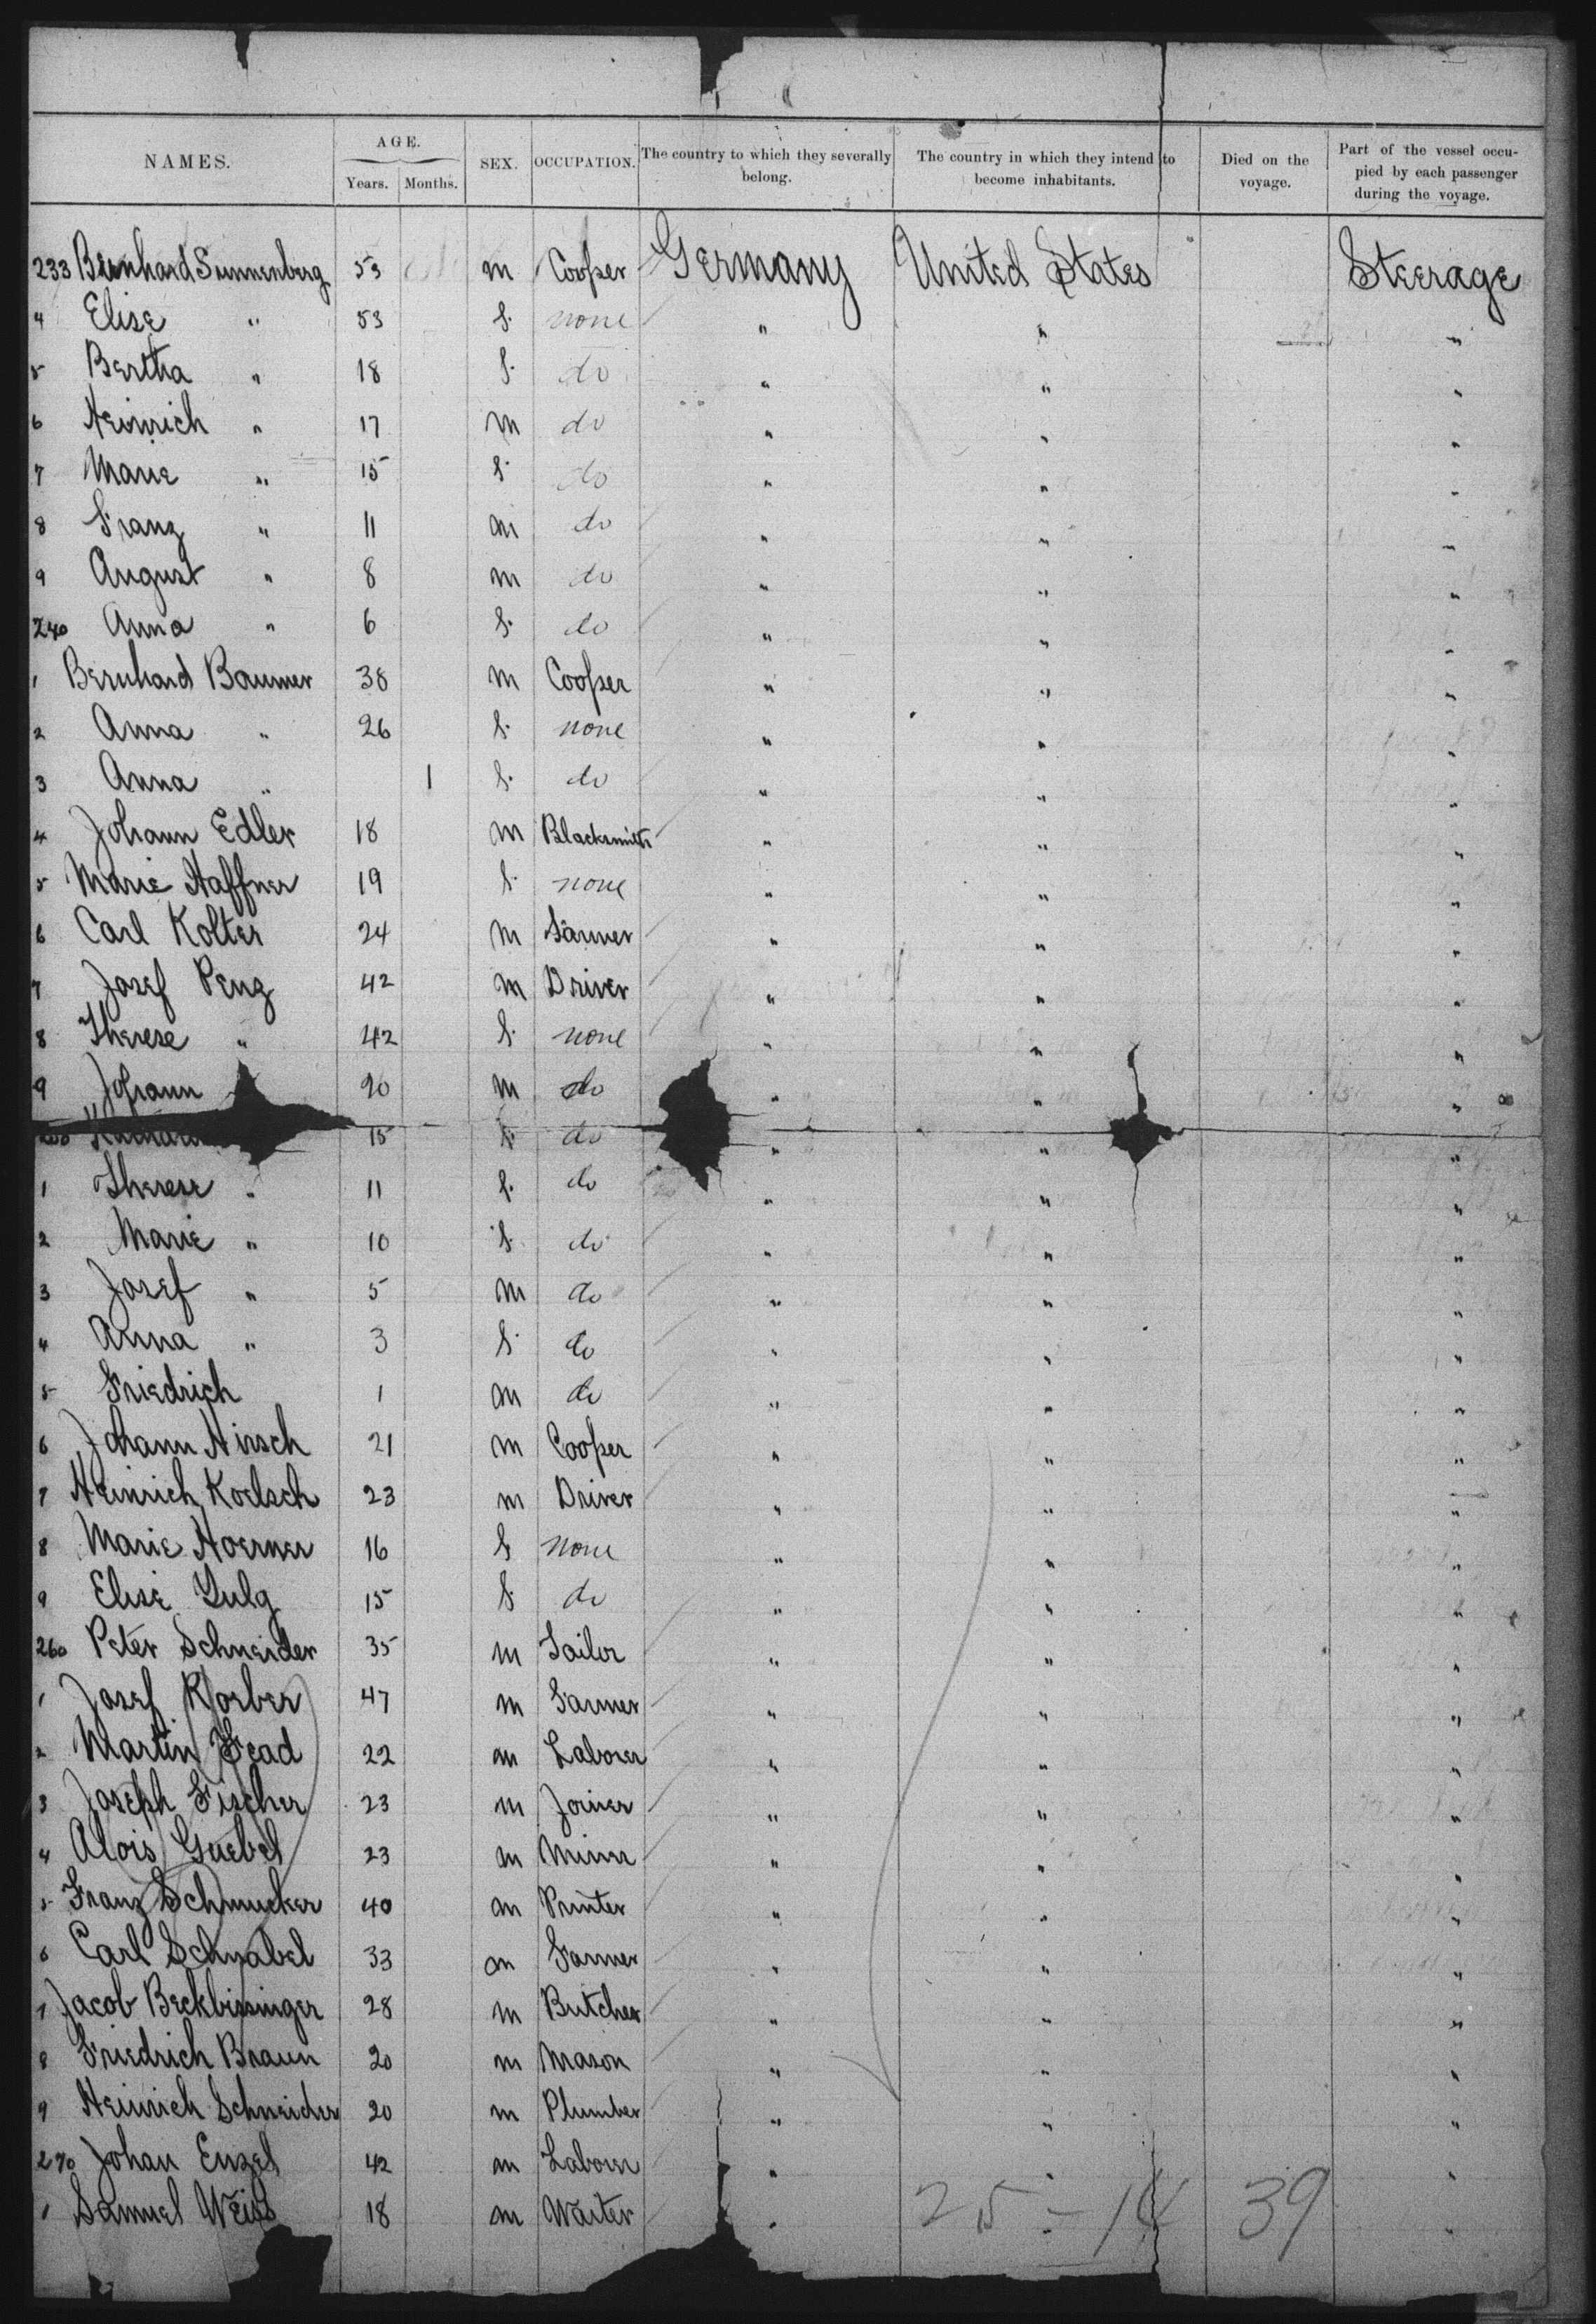 NAMES. AGE. Years. Months. SEX. OCCUPATION. The country to which they severally belong. The country in which they intend to become inhabitants. Died on the voyage. Part of the vessel occupied by each passenger during the voyage.
233 Bernhard Sunnenberg 53 m Cooper Germany United States Steerage
4 Elise " 53 f. none " " "
5 Bertha " 18 f. do " " "
6 Heinrich " 17 m do " " "
7 Marie " 15 f. do " " "
8 Franz " 11 m do " " "
9 August " 8 m do " " "
240 Anna " 6 f. do " " "
1 Bernhard Baumer 38 m Cooper " " "
2 Anna " 26 f. none " " "
3 Anna " 1 f. do " " "
4 Johann Edler 18 m Blacksmith " " "
5 Marie Haffner 19 f. none " " "
6 Carl Kolter 24 m Farmer " " "
7 Josef Penz 42 m Driver " " "
8 Therese " 42 f. none " " "
9 Johann 20 m do " " "
15 f. do " " "
1 Therese " 11 f. do " " "
2 Marie " 10 f. do " " "
3 Josef " 5 m do " " "
4 Anna " 3 f. do " " "
5 Friedrich 1 m do " " "
6 Johann Hirsch 21 m Cooper " " "
7 Heinrich Koelsch 23 m Driver " " "
8 Marie Hoerner 16 f none " " "
9 Elise 15 f. do " " "
260 Peter Schneider 35 m Tailor " " "
1 Josef Koerber 47 m Farmer " " "
2 Martin 22 m Laborer " " "
3 Joseph Fischer 23 m Joiner " " "
4 Alois Guebel 23 m Miner " " "
5 Franz Schmucker 40 m Printer " " "
6 Carl Schnabel 33 m Farmer " " "
7 Jacob Beckbissinger 28 m Butcher " " "
8 Friedrich Braun 20 m Mason " " "
9 Heinrich Schneider 20 m Plumber " " "
270 Johan Enzel 42 m Laborer " " "
1 Samuel Weiss 18 m Waiter " 25 - 14 39 "